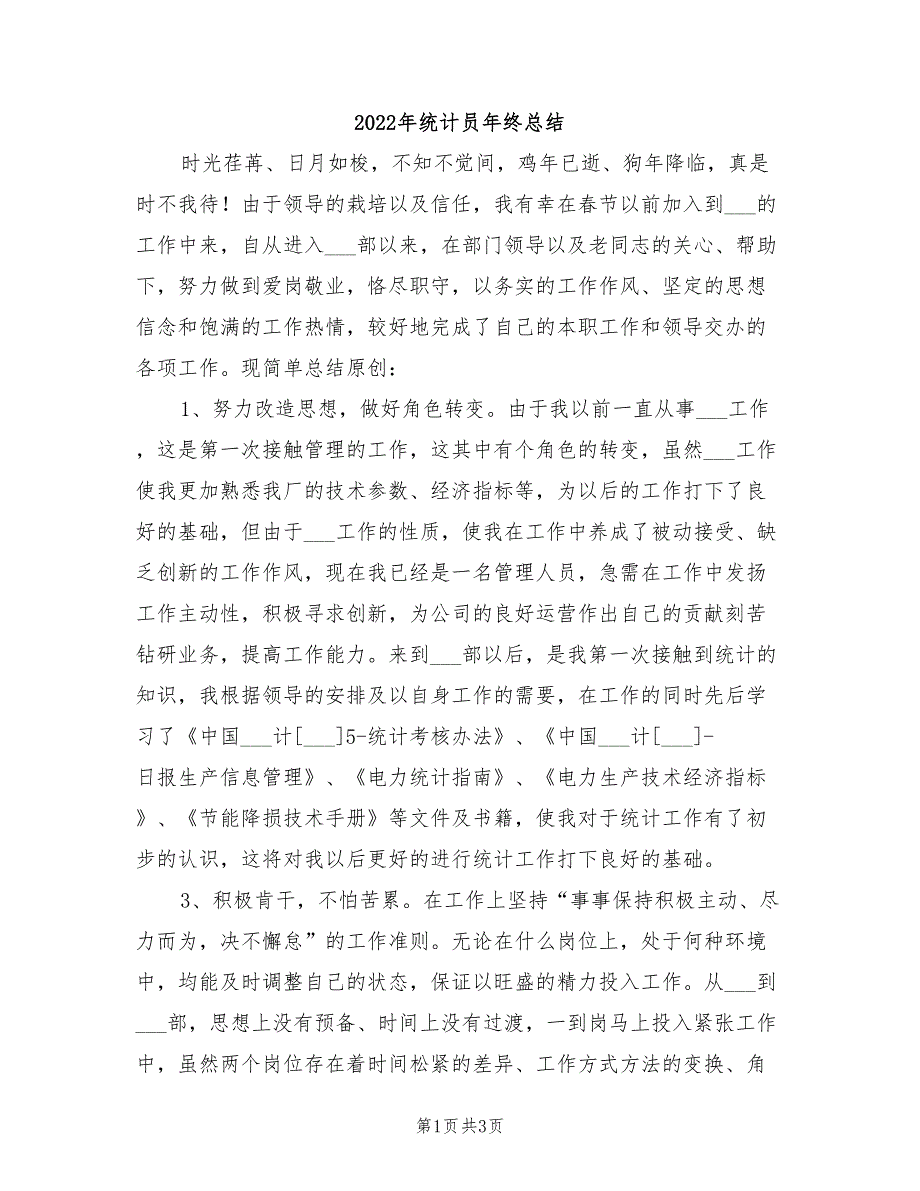 2022年统计员年终总结
时光荏苒、日月如梭，不知不觉间，鸡年已逝、狗年降临，真是
时不我待！由于领导的栽培以及信任，我有幸在春节以前加入到___的
工作中来，自从进入___部以来，在部门领导以及老同志的关心、帮助
下，努力做到爱岗敬业，恪尽职守，以务实的工作作风、坚定的思想
信念和饱满的工作热情，较好地完成了自己的本职工作和领导交办的
各项工作。现简单总结原创：
1、努力改造思想，做好角色转变。由于我以前一直从事___工作
，这是第一次接触管理的工作，这其中有个角色的转变，虽然___工作
使我更加熟悉我厂的技术参数、经济指标等，为以后的工作打下了良
好的基础，但由于___工作的性质，使我在工作中养成了被动接受、缺
乏创新的工作作风，现在我已经是一名管理人员，急需在工作中发扬
工作主动性，积极寻求创新，为公司的良好运营作出自己的贡献刻苦
钻研业务，提高工作能力。来到___部以后，是我第一次接触到统计的
知识，我根据领导的安排及以自身工作的需要，在工作的同时先后学
习了《中国___计[___]5-统计考核办法》、《中国___计[___]-
日报生产信息管理》、《电力统计指南》、《电力生产技术经济指标
》、《节能降损技术手册》等文件及书籍，使我对于统计工作有了初
步的认识，这将对我以后更好的进行统计工作打下良好的基础。
3、积极肯干，不怕苦累。在工作上坚持“事事保持积极主动、尽
力而为，决不懈怠”的工作准则。无论在什么岗位上，处于何种环境
中，均能及时调整自己的状态，保证以旺盛的精力投入工作。从___到
___部，思想上没有预备、时间上没有过渡，一到岗马上投入紧张工作
中，虽然两个岗位存在着时间松紧的差异、工作方式方法的变换、角
第1页共3页